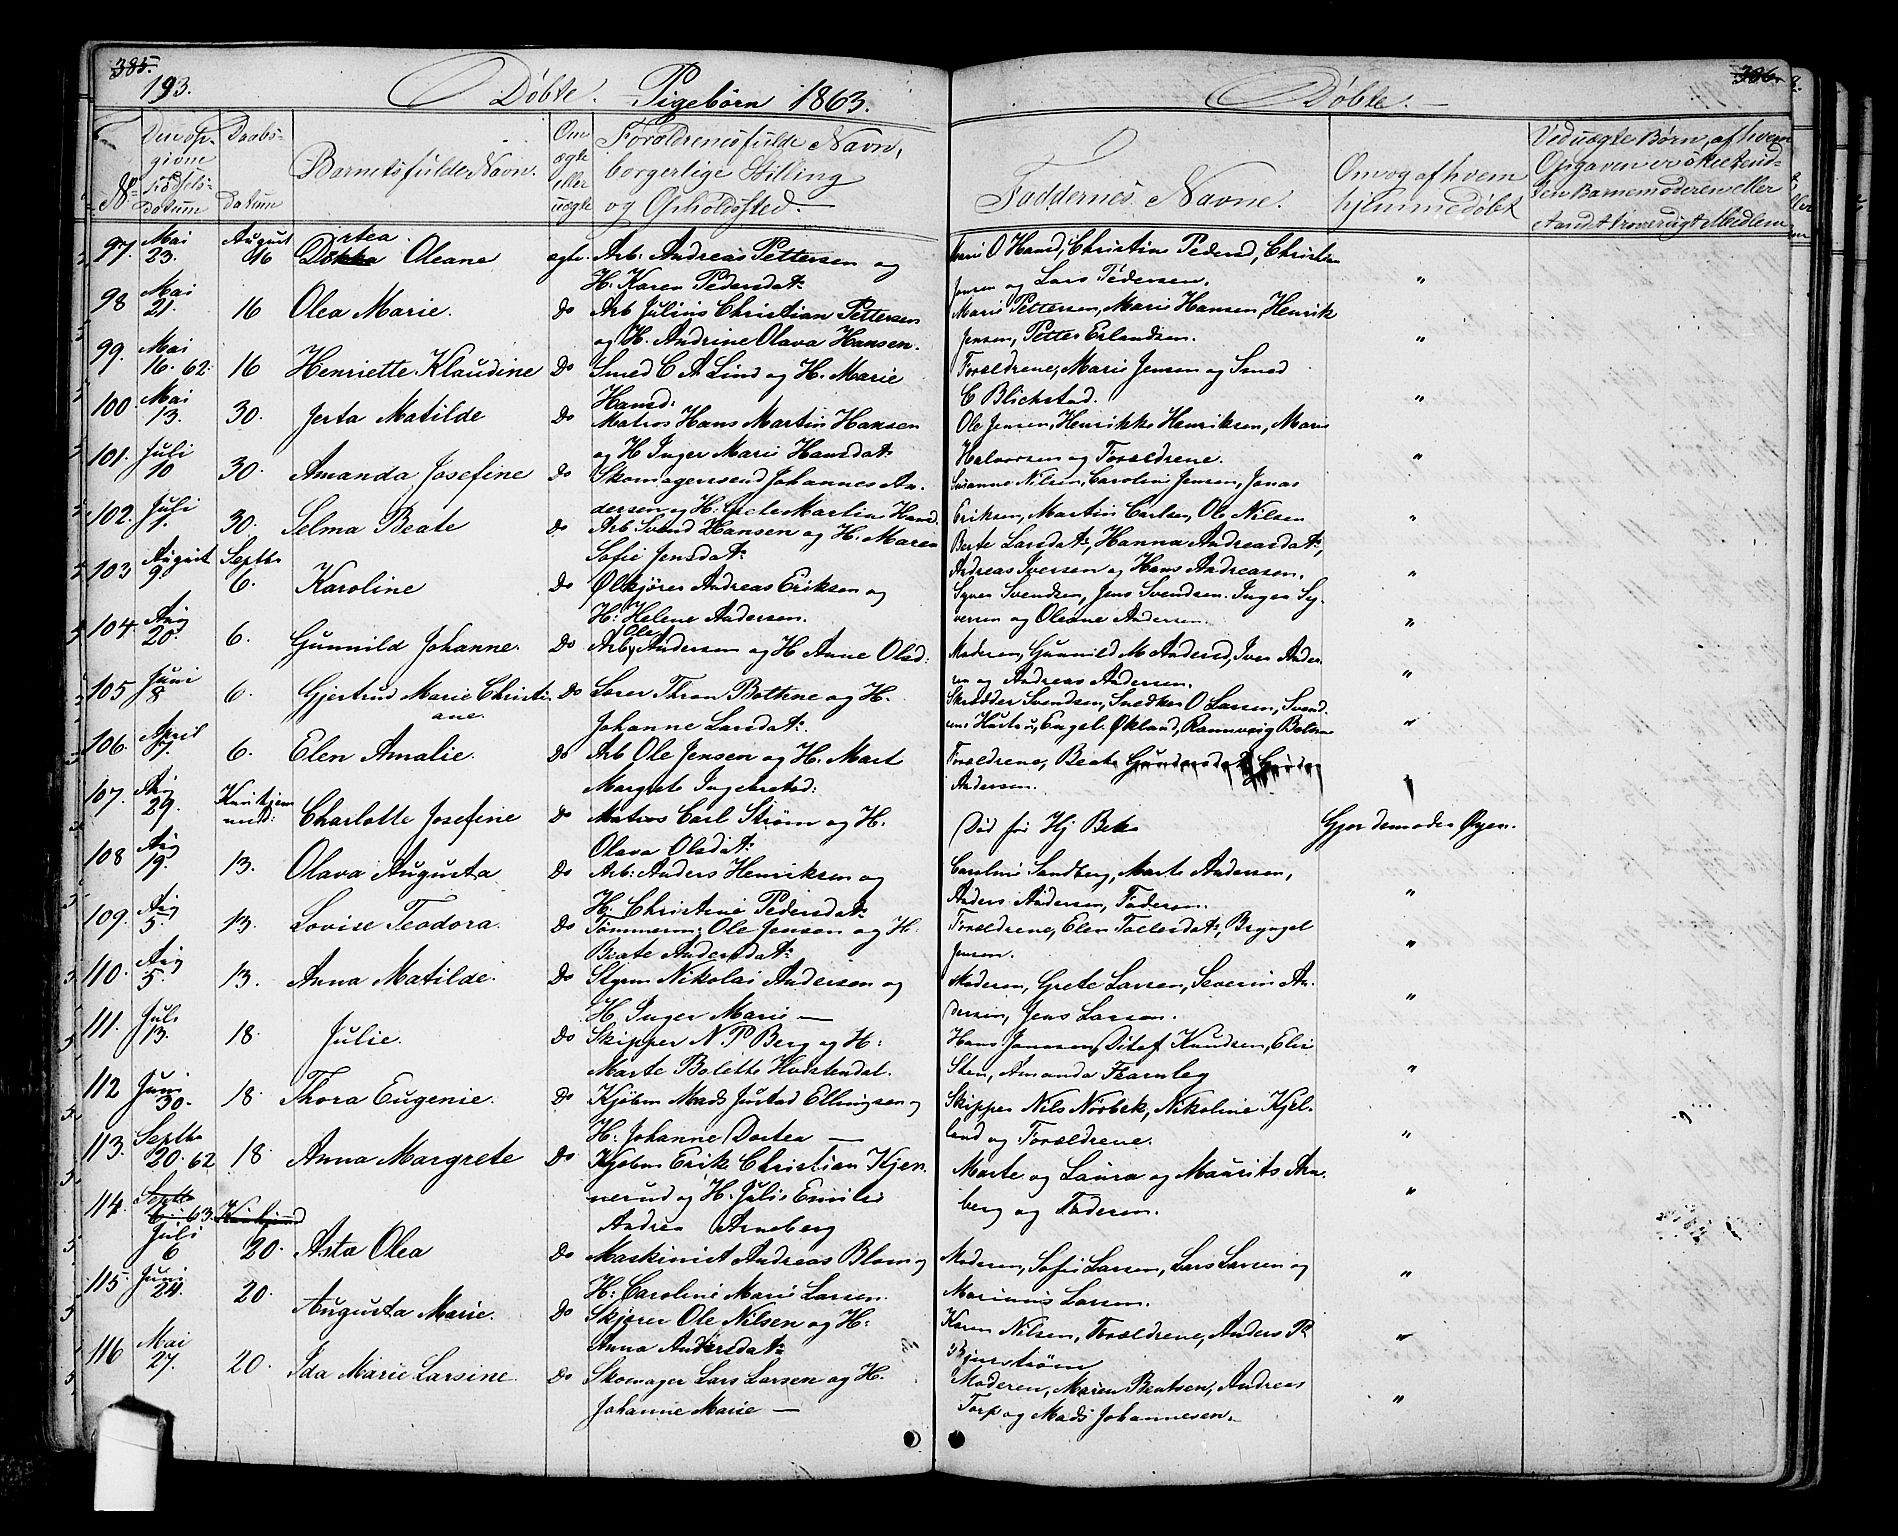 385.
193.
Döbte. Pigebörn 1863.
No
Den opgivne Födselsdatum
Daabsdatum
Barnets fulde Navn.
Om ægte eller uægte
Forældrenes fulde Navn,
borgerlige Stilling
og Opholdssted.
97. Mai 23. August 16 Dortea Oleane ægte. Arb: Andreas Pettersen og
H: Karen Pedersdat:
98 Mai 21. 16 Olea Marie. Do Arb Julius Christian Pettersen
og H. Andrine Olava Hansen.
99. Mai 16. 62. 16 Henriette Klaudine Do Smed C A Lind og H. Marie
Hansd:
100. Mai 13. 30. Jerta Matilde Do Matros Hans Martin Hansen
og H Inger Marie Hansdat:
101. Juli 10 30. Amanda Josefine Do Skomagersvend Johannes An-
dersen og H: Martia Hansd.
102. Juli 1. 30. Selma Beate Do Arb Svend Hansen og H. Maren
Sofie Jensdat:
103 August 9. Septbr 6. Karoline Do Ølkjører Andreas Eriksen og
H: Helene Andersen.
104. Aug 20. 6. Gunnild Johanne. Do Arb Ole Andersen og H Anne Olsd:
105 Juni 8 6. Gjertrud Marie Christi- Do Thron Bottene og H.
ane. Johanne Larsdat:
106. April 17. 6. Elen Amalie. Do Arb Ole Jensen og H. Mart
Margrete Ingebretsd:
107. Aug 29. Charlotte Josefine Do Matros Carl Strøm og H.
Olava Olsdat:
108 Aug 19. 13. Olava Augusta Do Arb: Anders Henriksen og
H: Christine Pedersdat:
109. Aug 5. 13. Lovise Teodora. Do Tømmerm: Ole Jensen og H.
Beate Andersdat:
110. Aug 5. 13. Anna Matilde. Do Styrm Nikolai Andersen og
H. Inger Marie —
111. Juli 13. 18. Julie. Do Skipper N. P Berg og H:
Marte Bolette
112 Juni 30. 18. Thora Eugenie. Do Kjøbm Mads Justad Ellingsen og
H: Johanne Dortea —
113. Septbr 20. 62 18. Anna Margrete Do Kjøbm Erik Christian Kjen-
nerud og H. Julie Emilie
Andrea Arneberg
114. Septbr 63.
Juli 6 20. Asta Olea Do Maskinist Andreas Blom og
H: Caroline Marie Larsen.
115. Juni 24. 20. Augusta Marie. Do Skjører Ole Nilsen og H:
Anna Andersdat:
116 Mai 27. 20. Ida Marie Larsine. Do Skomager Lars Larsen og H.
Johanne Marie —
386.
Döbte. —
Faddernes Navne.
Om og af hvem
hjemmedöbt
Ved uægte Børn, af hvem
Opgaven er skeet und-
ten Barnemoderen eller
andet troværdigt Medlem
Marie O Hansd, Christine Pedersd, Christian
Jensen og Lars Pedersen. "
Marie Pettersen, Marie Hansen, Henrik
Jensen, Petter Erlandsen. "
Forældrene, Marie Jensen og Smed
C Blichstad. "
Ole Jensen, Henrikke Henriksen, Marie
Halvorsen og Forældrene. "
Susanne Nilsen, Caroline Jensen, Jonas
Eriksen, Martin Carlsen, Ole Nilsen "
Berte Larsdat:, Hanna Andreasdat:,
Andreas Iversen og Hans Andreasen. "
Syver Svendsen, Jens Svendsen. Inger Sy-
versen og Oleane Andersen. "
Moderen, Gunnild M Andersd, Iver Ander-
sen og Andreas Andersen. "
Skrædder Svendsen, Snedker O Larsen, Svend-
sens Hustru, Engel. Økland, Rannveig "
Forældrene, Beate Gundersdat:
Andersen. "
Død før Hj Bek Gjordemoder Øyen.
Caroline Sandberg, Marte Andersen,
Anders Andersen, Faderen. "
Forældrene, Elen Tollefsdat:, Brynjel
Jensen. "
Moderen, Grete Larsen, Severin An-
dersen, Jens Larsen. "
Hans Jonassen, Ditlef Knudsen, Elise
Sten, Amanda Fearnley "
Skipper Nils Norbek, Nikoline Kjel-
land og Forældrene. "
Marte og Laura og Maurits Arne-
berg og Faderen. "
Moderen, Sofie Larsen, Lars Larsen og
Marinius Larsen. "
Karen Nilsen, Forældrene, Anders P.
Bjurstrøm "
Moderen, Maren Bentsen, Andreas
Torp og Mads Johannesen. "